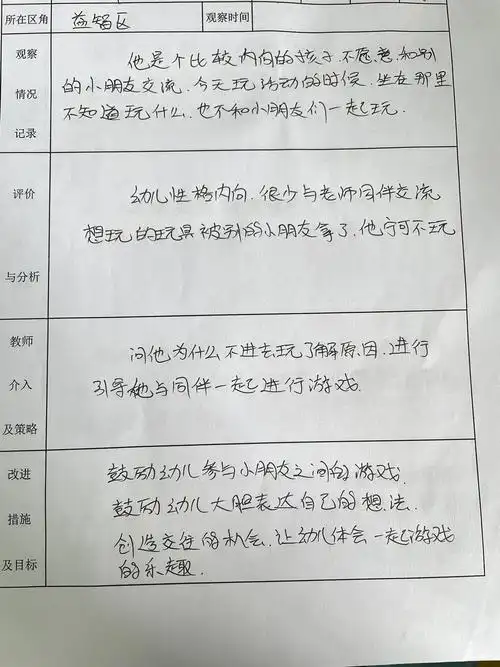 所在区角 益智区 观察时间
观察情况记录
他是个比较内向的孩子.不愿意和别
的小朋友交流.今天玩活动的时候.坐在那里
不知道玩什么.也不和小朋友们一起玩.
评价与分析
幼儿性格内向.很少与老师同伴交流
想玩的玩具被别的小朋友拿了.他宁可不玩
教师介入及策略
问他为什么不进去玩了解原因.进行
引导他与同伴一起进行游戏.
改进措施及目标
鼓励幼儿参与小朋友之间的游戏.
鼓励幼儿大胆表达自己的想法.
创造交往的机会.让幼儿体会一起游戏
的乐趣.